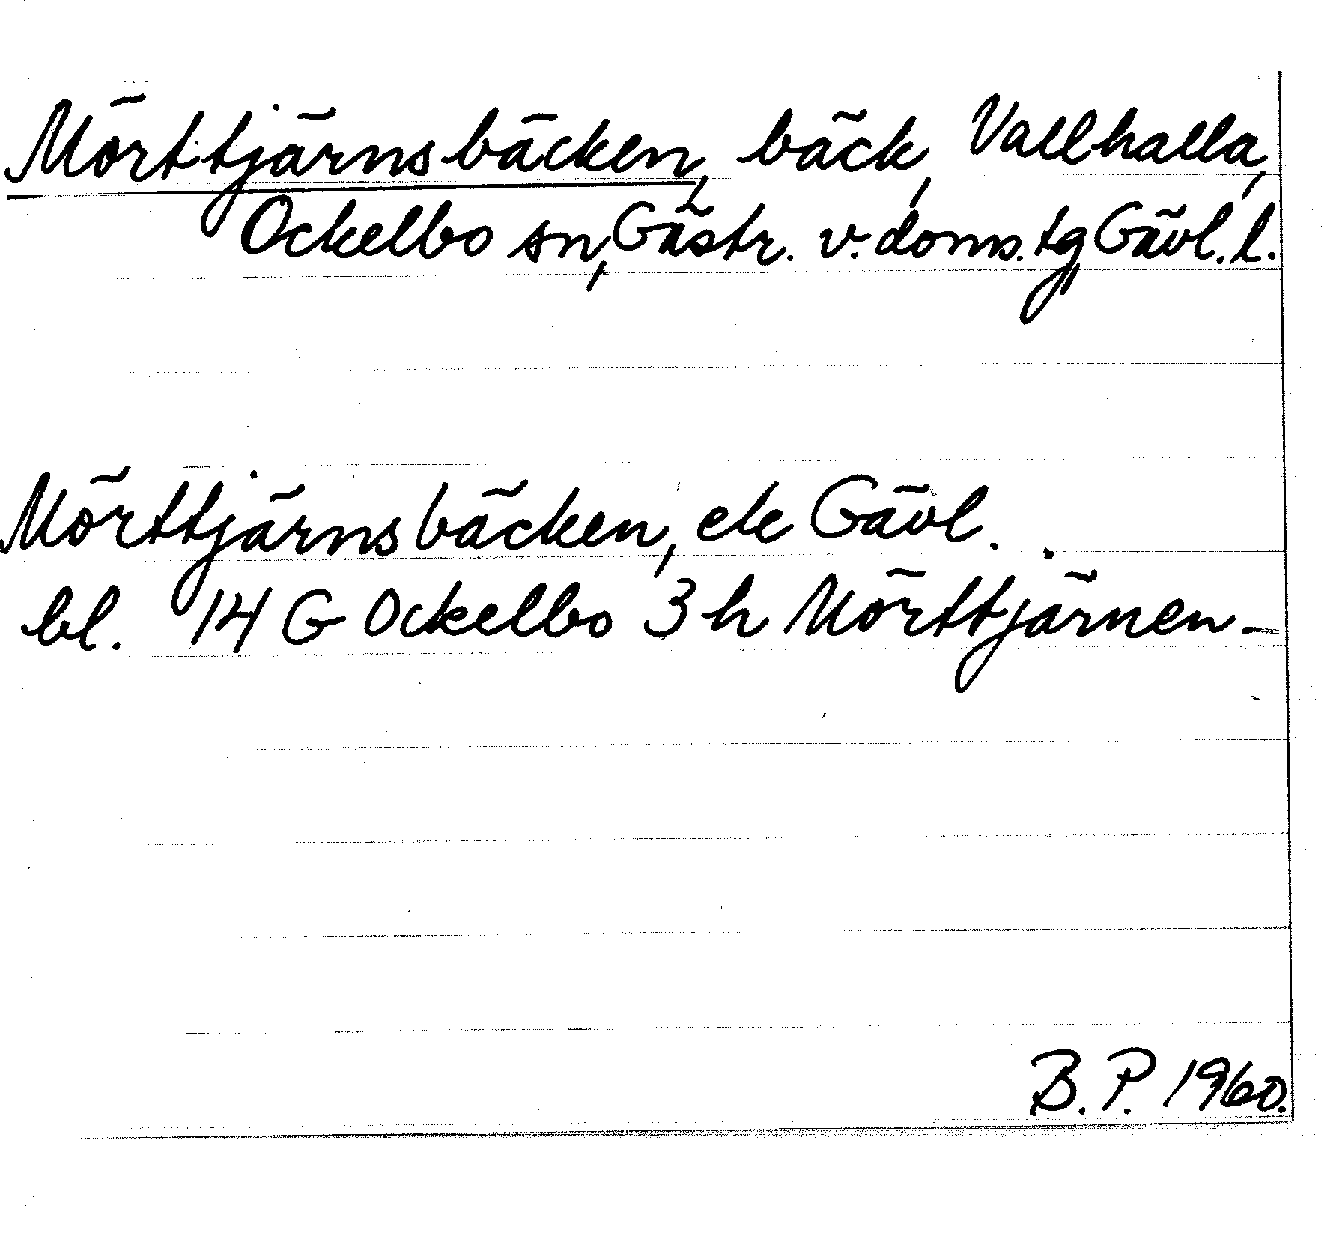 Mörttjärnsbäcken, bäck, Vallhalla,
Ockelbo sn, Gästr. v. doms. tg, Gävl. l.
Mörttjärnsbäcken, ek Gävl.
bl. 14 G Ockelbo 3 h Mörttjärnen –
B. P. 1960.